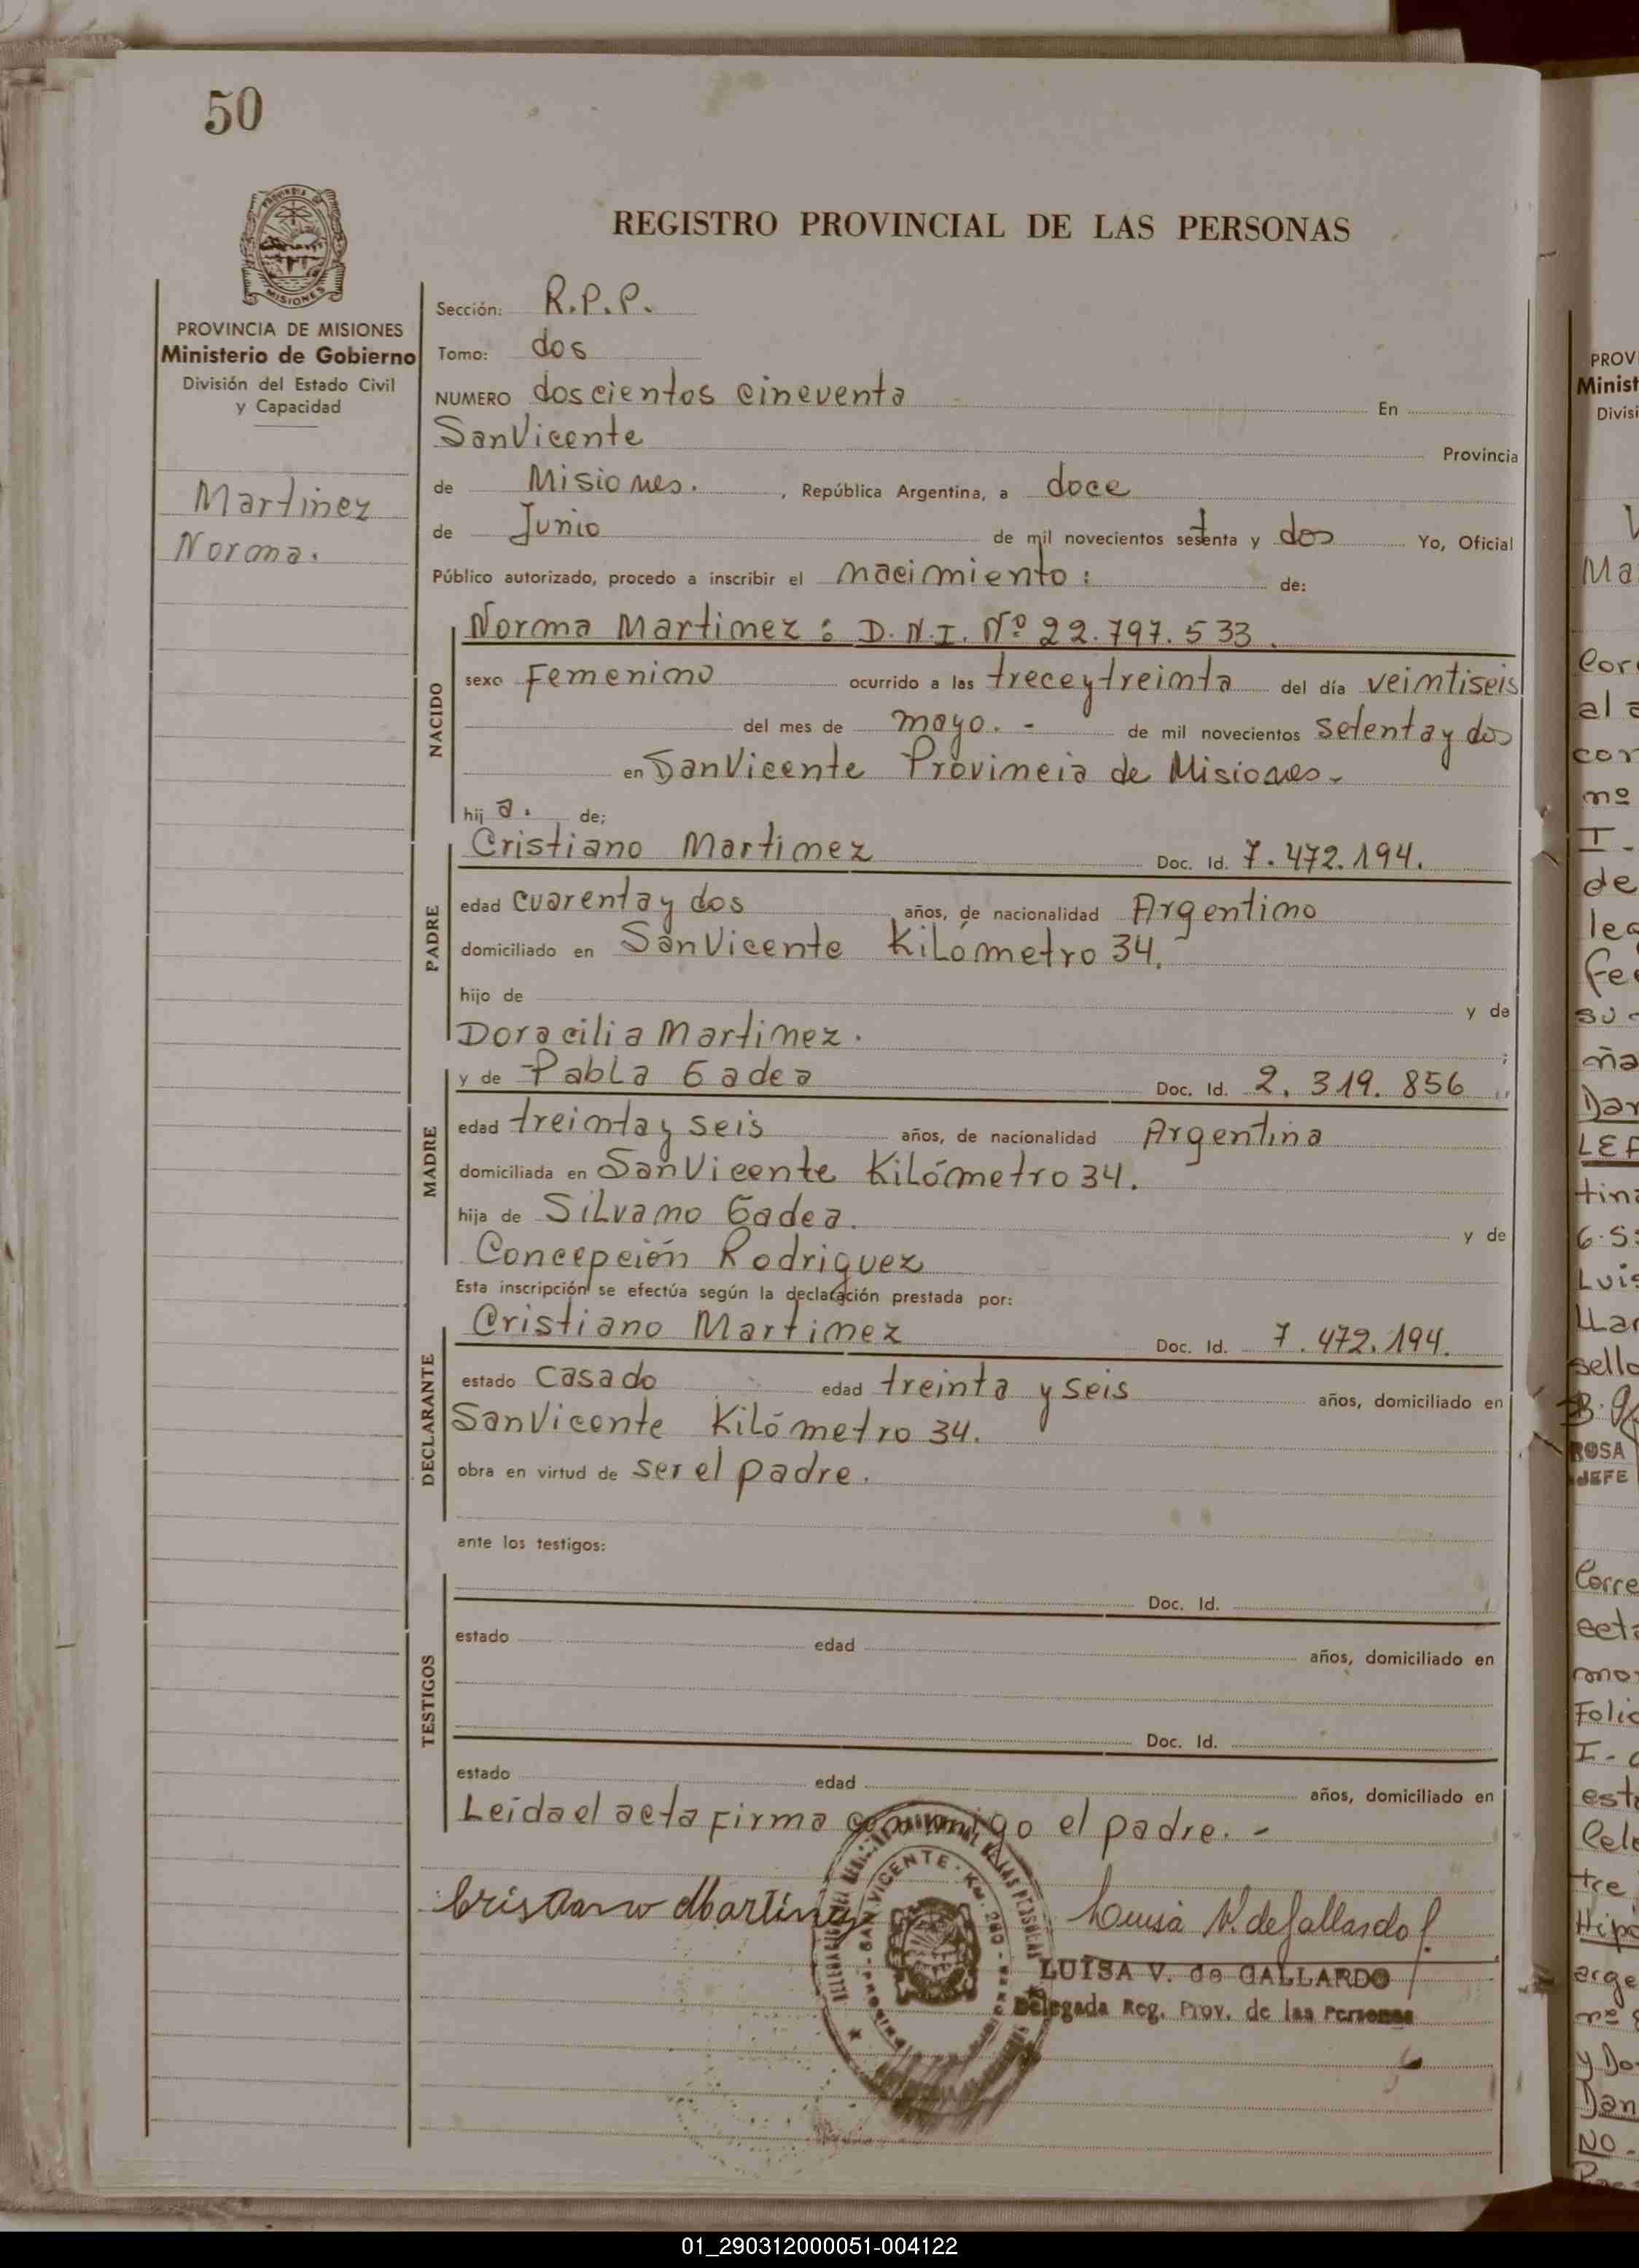 50
PROVINCIA
MISIONES
PROVINCIA DE MISIONES
Ministerio de Gobierno
División del Estado Civil
y Capacidad
Martinez
Norma.
REGISTRO PROVINCIAL DE LAS PERSONAS
Sección: R.P.P.
Tomo: dos
NUMERO doscientos cincuenta En
San Vicente Provincia
de Misiones. , República Argentina, a doce
de Junio de mil novecientos setenta y dos Yo, Oficial
Público autorizado, procedo a inscribir el nacimiento: de:
NACIDO
Norma Martinez : D.N.I. Nº 22.797.533.
sexo Femenino ocurrido a las trece y treinta del día veintiseis
del mes de mayo. - de mil novecientos setenta y dos
en San Vicente Provincia de Misiones-
hij a. de;
PADRE
Cristiano Martinez Doc. Id. 7.472.194.
edad cuarenta y dos años, de nacionalidad Argentino
domiciliado en San Vicente Kilómetro 34.
hijo de y de
Doracilia Martinez.
MADRE
y de Pabla Gadea Doc. Id. 2.319.856
edad treinta y seis años, de nacionalidad Argentina
domiciliada en San Vicente Kilómetro 34.
hija de Silvano Gadea. y de
Concepción Rodriguez
Esta inscripción se efectúa según la declaración prestada por:
DECLARANTE
Cristiano Martinez Doc. Id. 7.472.194.
estado casado edad treinta y seis años, domiciliado en
San Vicente Kilómetro 34.
obra en virtud de ser el padre.
ante los testigos:
TESTIGOS
Doc. Id.
estado edad años, domiciliado en
Doc. Id.
estado edad años, domiciliado en
Leida el acta firma conmigo el padre. -
Cristiano Martinez
Luisa V. de Gallardo
SAN VICENTE - KM. 280
LUISA V. de GALLARDO
Delegada Reg. Prov. de las Personas
PROV
Minist
Divisi
Ma
Cor
al a
con
nº
I.
de
leg
fe
su
ña
Dar
LEA
tina
6.5
Luis
LLa
sello
ROSA
JEFE
Corre
ecta
mo
Folio
I-
est
Cel
tre
Hipó
arge
nº
y Do
Dan
NO-
01_290312000051-004122